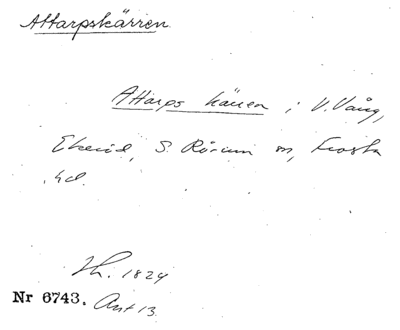 Attarpskärren
Attarps kärren i V. Vång,
Ekeröd, S. Rörum sn, Frosta
hd.
Th. 1824
Nr 6743. Ant 13